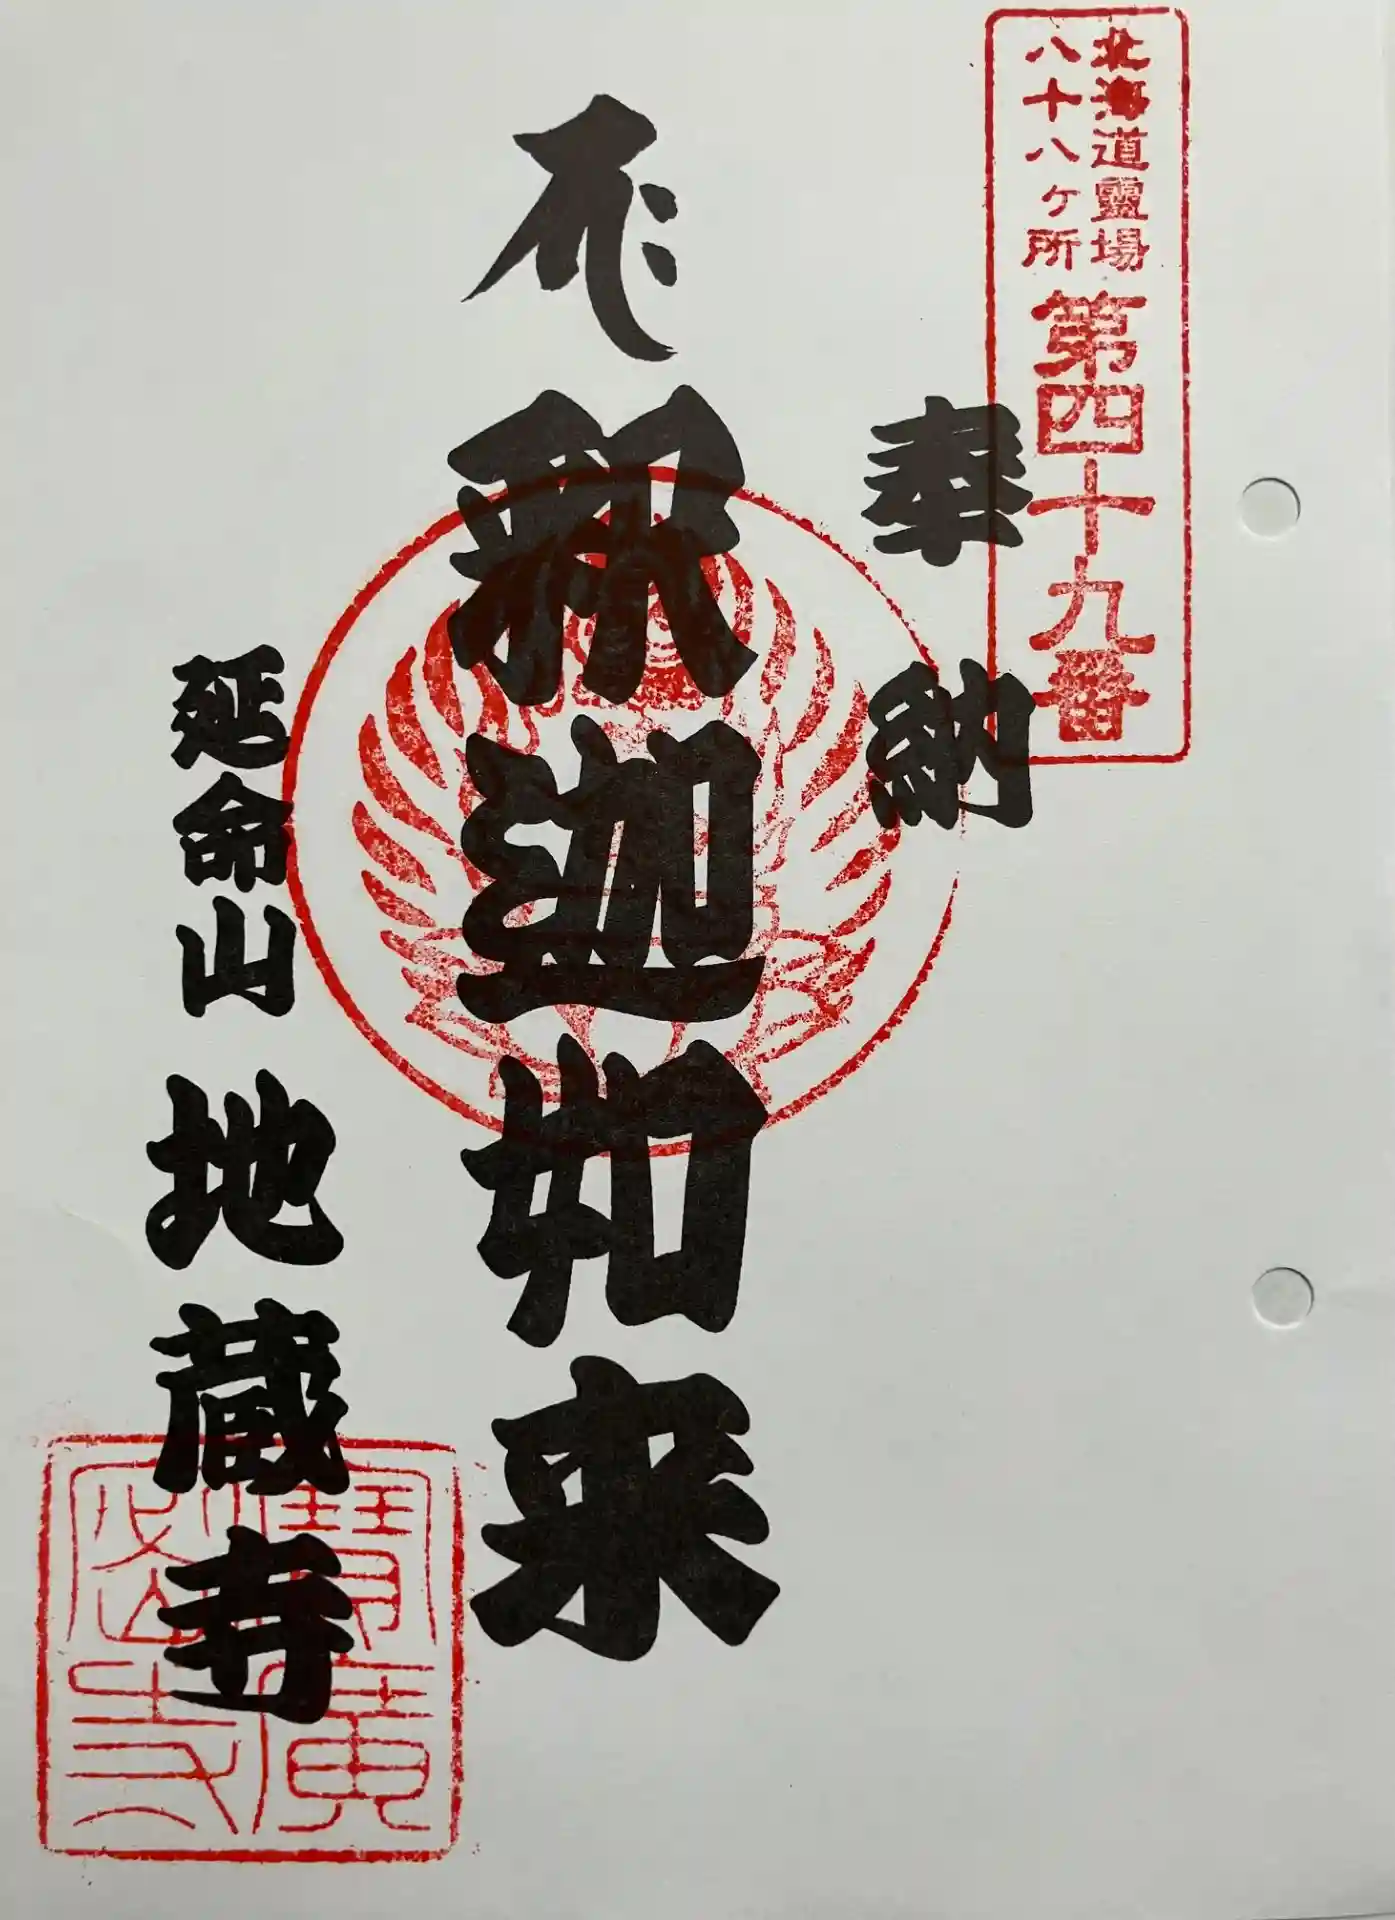 北海道靈場
八十八ヶ所
第四十九番
奉納
釈迦如来
延命山 地蔵寺